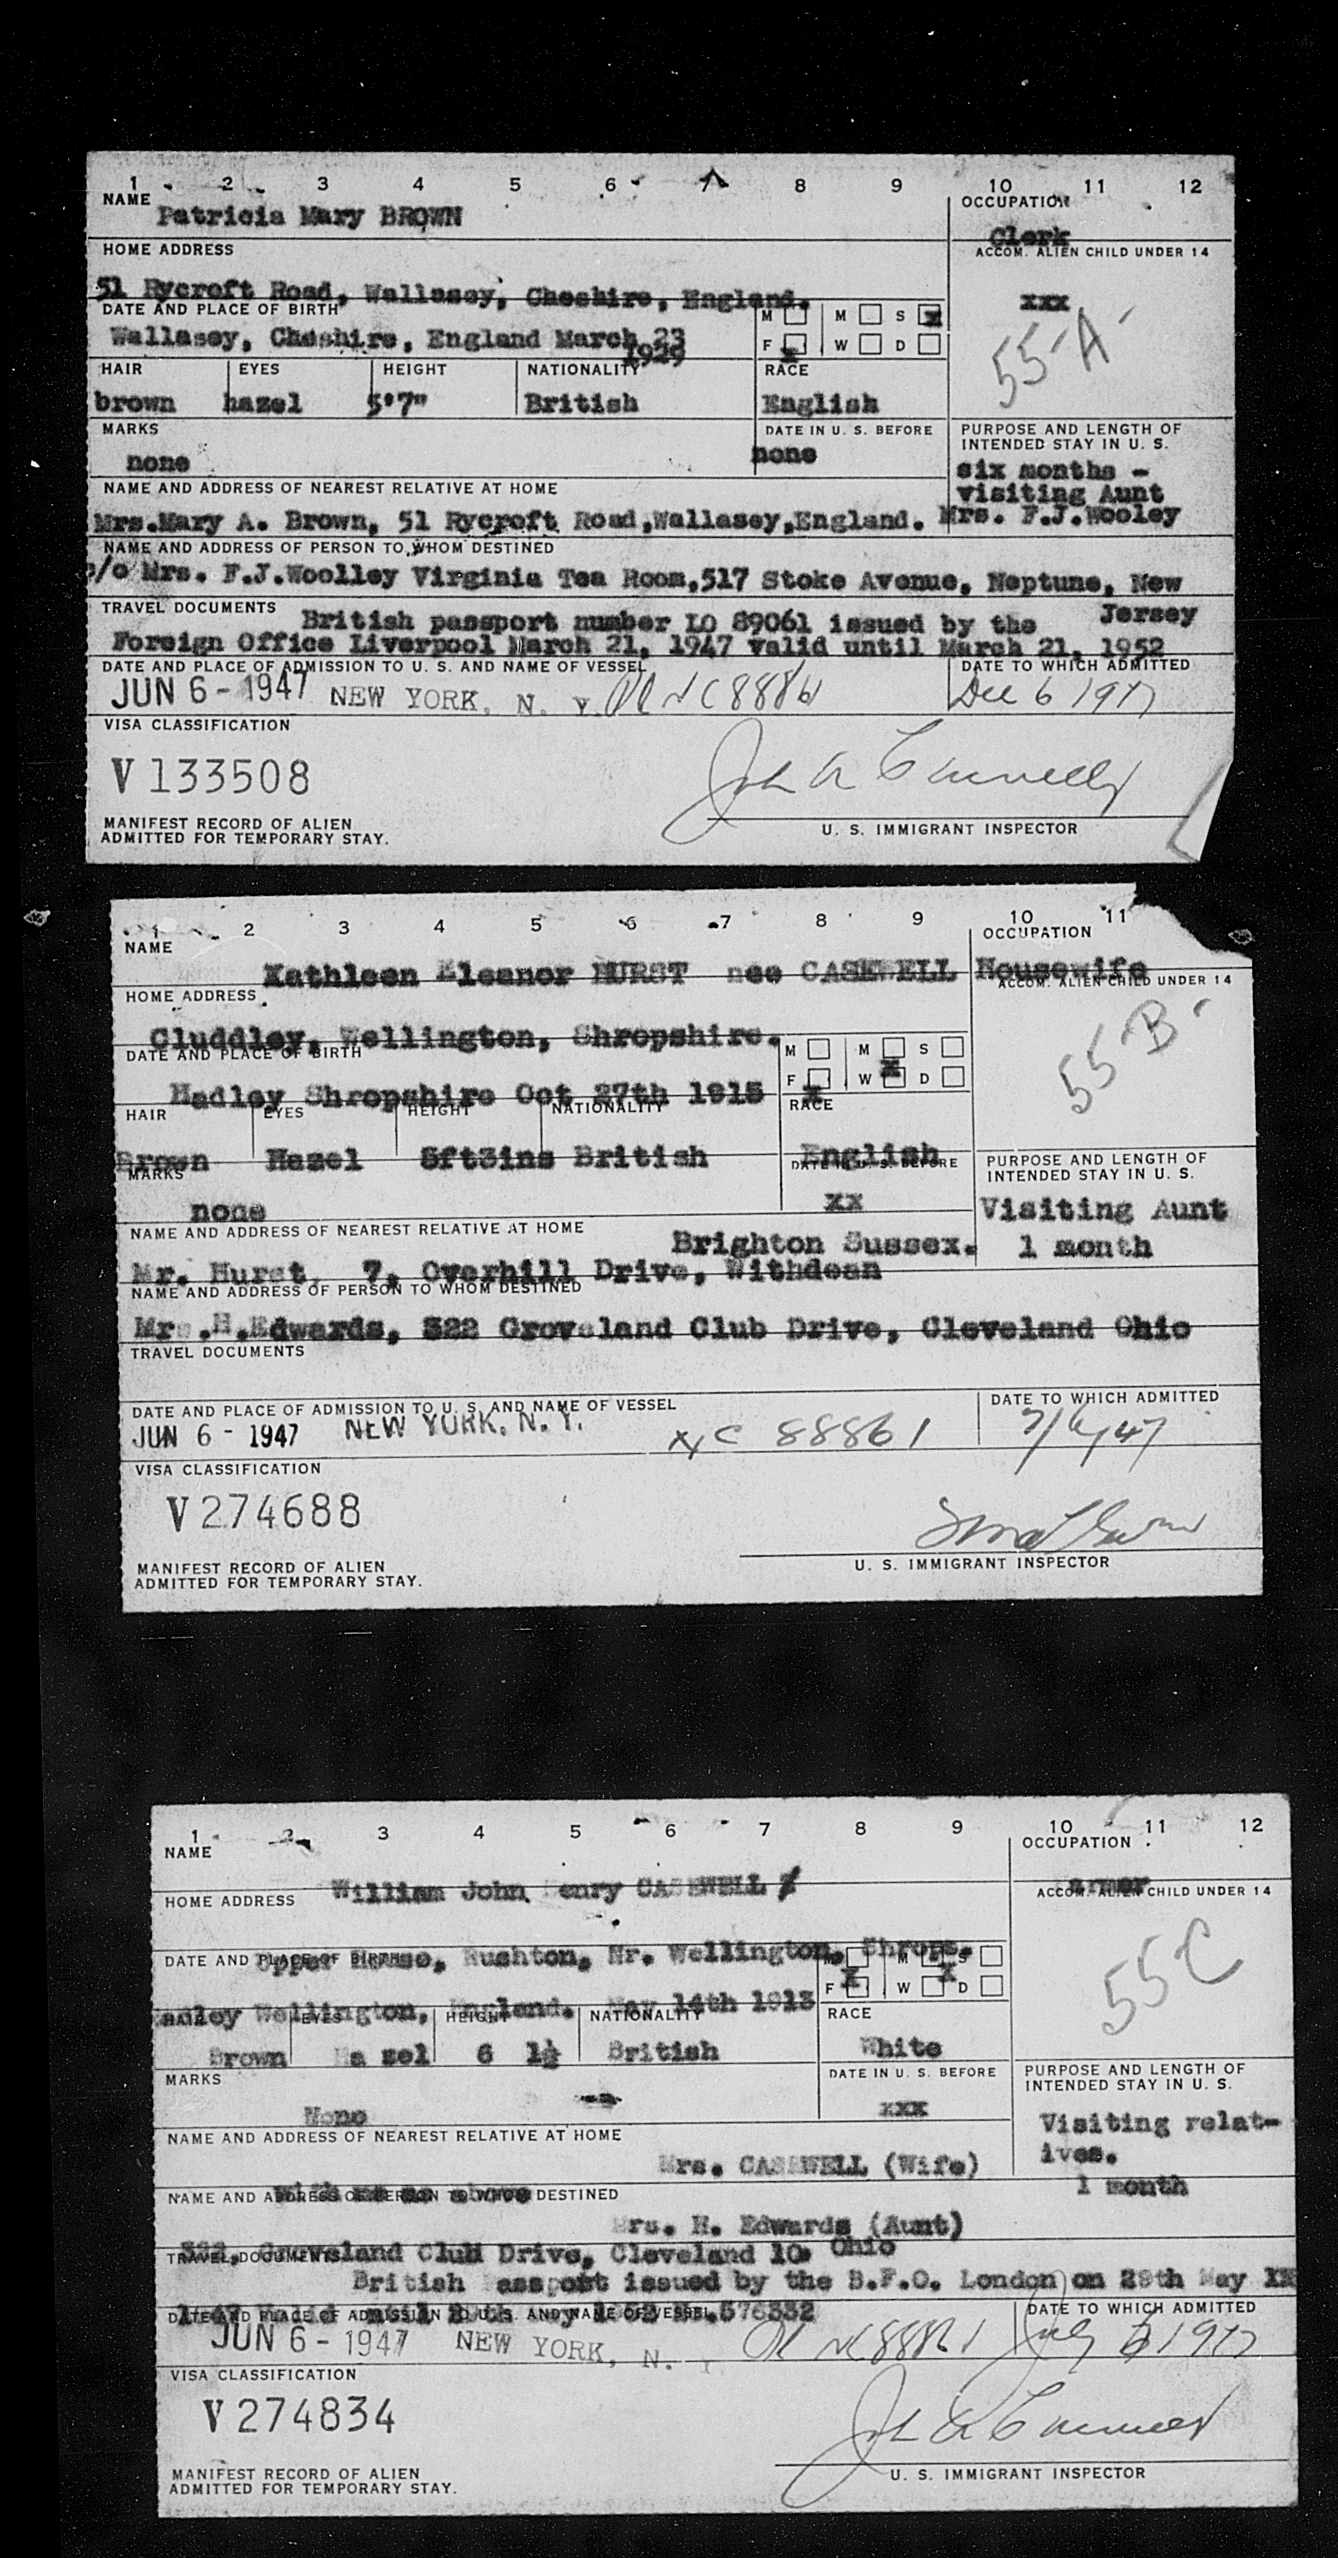 1 2 3 4 5 6 7 8 9 10 11 12
NAME OCCUPATION
Patricia Mary BROWN
Clerk
HOME ADDRESS ACCOM. ALIEN CHILD UNDER 14
51 Rycroft Road, Wallasey, Cheshire, England. xxx
DATE AND PLACE OF BIRTH M M S x
55-A-
Wallasey, Cheshire, England March 23 F x W D
1929
HAIR EYES HEIGHT NATIONALITY RACE
brown hazel 5'7" British English
MARKS DATE IN U. S. BEFORE PURPOSE AND LENGTH OF
INTENDED STAY IN U. S.
none none six months -
NAME AND ADDRESS OF NEAREST RELATIVE AT HOME visiting Aunt
Mrs.Mary A. Brown, 51 Rycroft Road,Wallasey,England. Mrs. F.J.Wooley
NAME AND ADDRESS OF PERSON TO WHOM DESTINED
c/o Mrs. F.J.Woolley Virginia Tea Room,517 Stoke Avenue, Neptune, New
TRAVEL DOCUMENTS British passport number LO 89061 issued by the Jersey
Foreign Office Liverpool March 21, 1947 valid until March 21, 1952
DATE AND PLACE OF ADMISSION TO U. S. AND NAME OF VESSEL DATE TO WHICH ADMITTED
JUN 6 - 1947 NEW YORK, N. Y. NC 88861 Dec 6 1947
VISA CLASSIFICATION
V 133508
MANIFEST RECORD OF ALIEN
ADMITTED FOR TEMPORARY STAY. U. S. IMMIGRANT INSPECTOR
1 2 3 4 5 6 7 8 9 10 11
NAME OCCUPATION
Kathleen Eleanor HURST nee CASEWELL Housewife
HOME ADDRESS ACCOM. ALIEN CHILD UNDER 14
Cluddley, Wellington, Shropshire.
DATE AND PLACE OF BIRTH M M S
55-B-
Hadley Shropshire Oct 27th 1915 F x W x D
HAIR EYES HEIGHT NATIONALITY RACE
Brown Hazel 5ft3ins British English
MARKS DATE IN U. S. BEFORE PURPOSE AND LENGTH OF
INTENDED STAY IN U. S.
none xx Visiting Aunt
NAME AND ADDRESS OF NEAREST RELATIVE AT HOME
Brighton Sussex. 1 month
Mr. Hurst, 7, Overhill Drive, Withdean
NAME AND ADDRESS OF PERSON TO WHOM DESTINED
Mrs.H.Edwards, 322 Groveland Club Drive, Cleveland Ohio
TRAVEL DOCUMENTS
DATE AND PLACE OF ADMISSION TO U. S. AND NAME OF VESSEL DATE TO WHICH ADMITTED
JUN 6 - 1947 NEW YORK, N. Y. NC 88861 7/6/47
VISA CLASSIFICATION
V 274688
MANIFEST RECORD OF ALIEN
ADMITTED FOR TEMPORARY STAY. U. S. IMMIGRANT INSPECTOR
1 2 3 4 5 6 7 8 9 10 11 12
NAME OCCUPATION
William John Henry CASEWELL
Farmer
HOME ADDRESS ACCOM. ALIEN CHILD UNDER 14
Upper House, Rushton, Nr. Wellington, Shrops.
DATE AND PLACE OF BIRTH M x M x S
55 C
Hadley Wellington, England. May 14th 1913 F W D
HAIR EYES HEIGHT NATIONALITY RACE
Brown Hazel 6 1½ British White
MARKS DATE IN U. S. BEFORE PURPOSE AND LENGTH OF
INTENDED STAY IN U. S.
None xxx Visiting relat-
NAME AND ADDRESS OF NEAREST RELATIVE AT HOME
Mrs. CASEWELL (Wife) ives.
as above 1 month
NAME AND ADDRESS OF PERSON TO WHOM DESTINED
Mrs. H. Edwards (Aunt)
322, Groveland Club Drive, Cleveland 10. Ohio
TRAVEL DOCUMENTS
British Passport issued by the B.F.O. London on 29th May
DATE AND PLACE OF ADMISSION TO U. S. AND NAME OF VESSEL DATE TO WHICH ADMITTED
JUN 6 - 1947 NEW YORK, N. NC 88861 July 6 1947
VISA CLASSIFICATION
V 274834
MANIFEST RECORD OF ALIEN
ADMITTED FOR TEMPORARY STAY. U. S. IMMIGRANT INSPECTOR